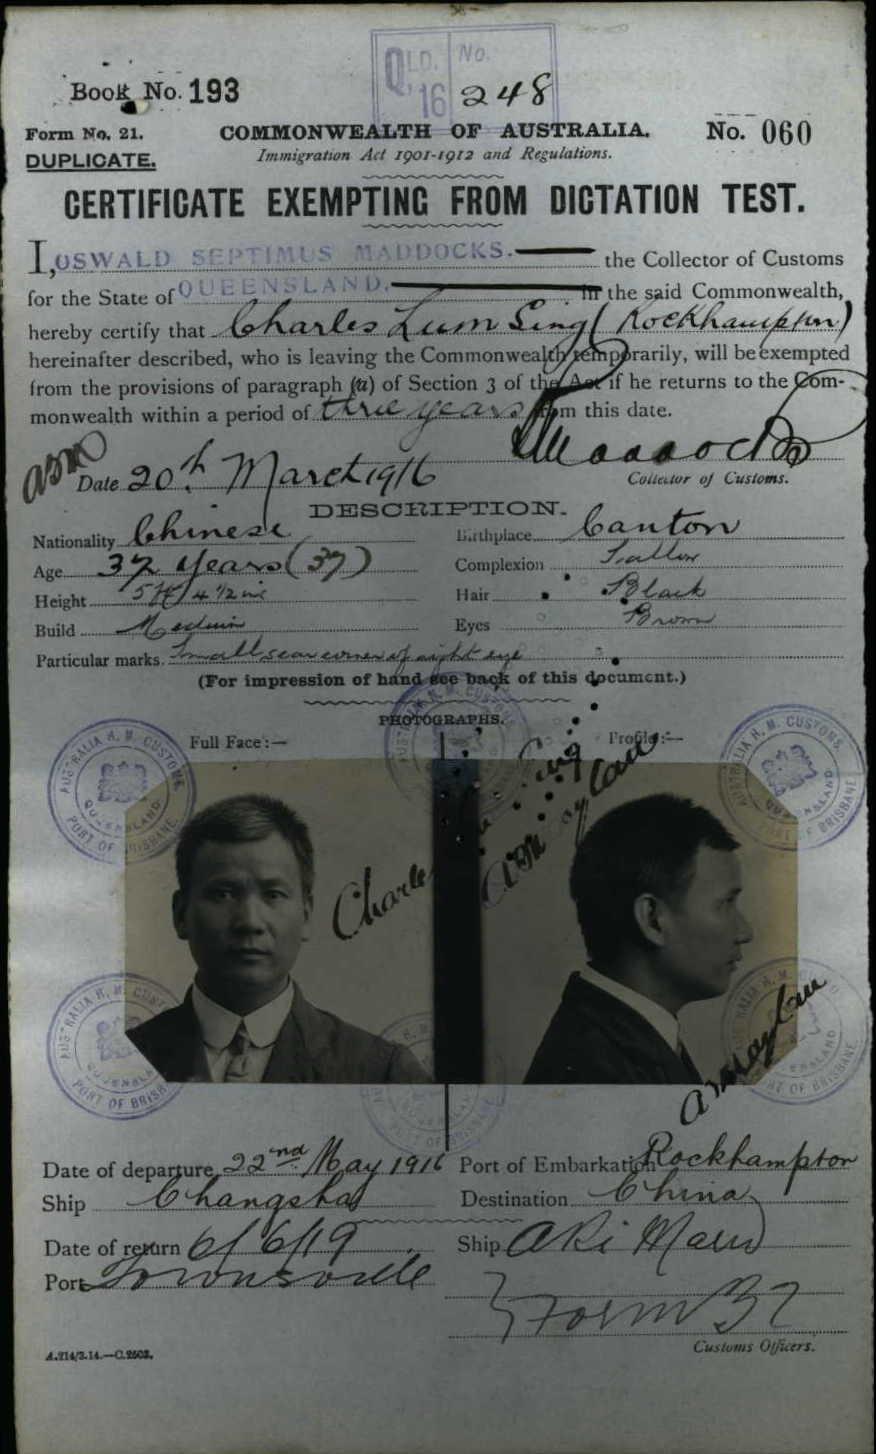 QLD. No.
16 248
Book No. 193
Form No. 21. COMMONWEALTH OF AUSTRALIA. No. 060
DUPLICATE. Immigration Act 1901-1912 and Regulations.
CERTIFICATE EXEMPTING FROM DICTATION TEST.
I, OSWALD SEPTIMUS MADDOCKS. the Collector of Customs
for the State of QUEENSLAND. in the said Commonwealth,
hereby certify that Charles Lum Sing (Rockhampton)
hereinafter described, who is leaving the Commonwealth temporarily, will be exempted
from the provisions of paragraph (a) of Section 3 of the Act if he returns to the Com-
monwealth within a period of three years from this date.
Maddocks
Date 20th March 1916 Collector of Customs.
DESCRIPTION.
Nationality Chinese Birthplace Canton
Age 37 years (37) Complexion Sallow
Height 5 ft 4 1/2 in Hair Black
Build Medium Eyes Brown
Particular marks. Small scar corner of right eye
(For impression of hand see back of this document.)
PHOTOGRAPHS.
Full Face:— Profile:—
AUSTRALIA H. M. CUSTOMS
QUEENSLAND
PORT OF BRISBANE
Charles Sing
Date of departure 22nd May 1916 Port of Embarkation Rockhampton
Ship Changsha Destination China
Date of return 6/6/19 Ship Aki Maru
Port Townsville
Form 32
A.214/3.14.—C.2503. Customs Officers.